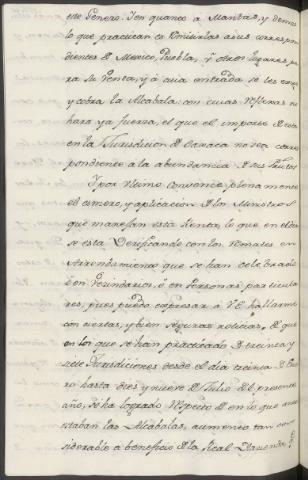 este Genero. Y en quanto a Mantas, y demas
lo que practican es remitirlas a sus corres pon
dientes de Mexico, Puebla, y otros lugares pa
ra su Venta, y a cuia entrada se les exije
y cobra la Alcabala: con cuias
hara ya fuerza, el que el importe de esta
en la Jurisdicion de Oaxaca no sea corres
pondiente a la abundancia de sus frutos
Y por ultimo convence plenamente
el esmero, y aplicacion de los Ministros
que manejan esta Renta, lo que en el dia
se está Verificando con los Remates en
Arrendamiento que se han celebrado
ó en Vecindarios, ó en personas particula
res, pues puedo expresar a V.E. hallarme
con ciertas, y bien seguras noticias, de que
en los que se han practicado de treinta y
siete Jurisdiciones desde el dia treinta de Ene
ro hasta diez y nueve de Julio del presente
año, se ha logrado respecto de en lo que antes
estaban las Alcabalas, aumento tan con
siderable a beneficio de la Real Hacienda